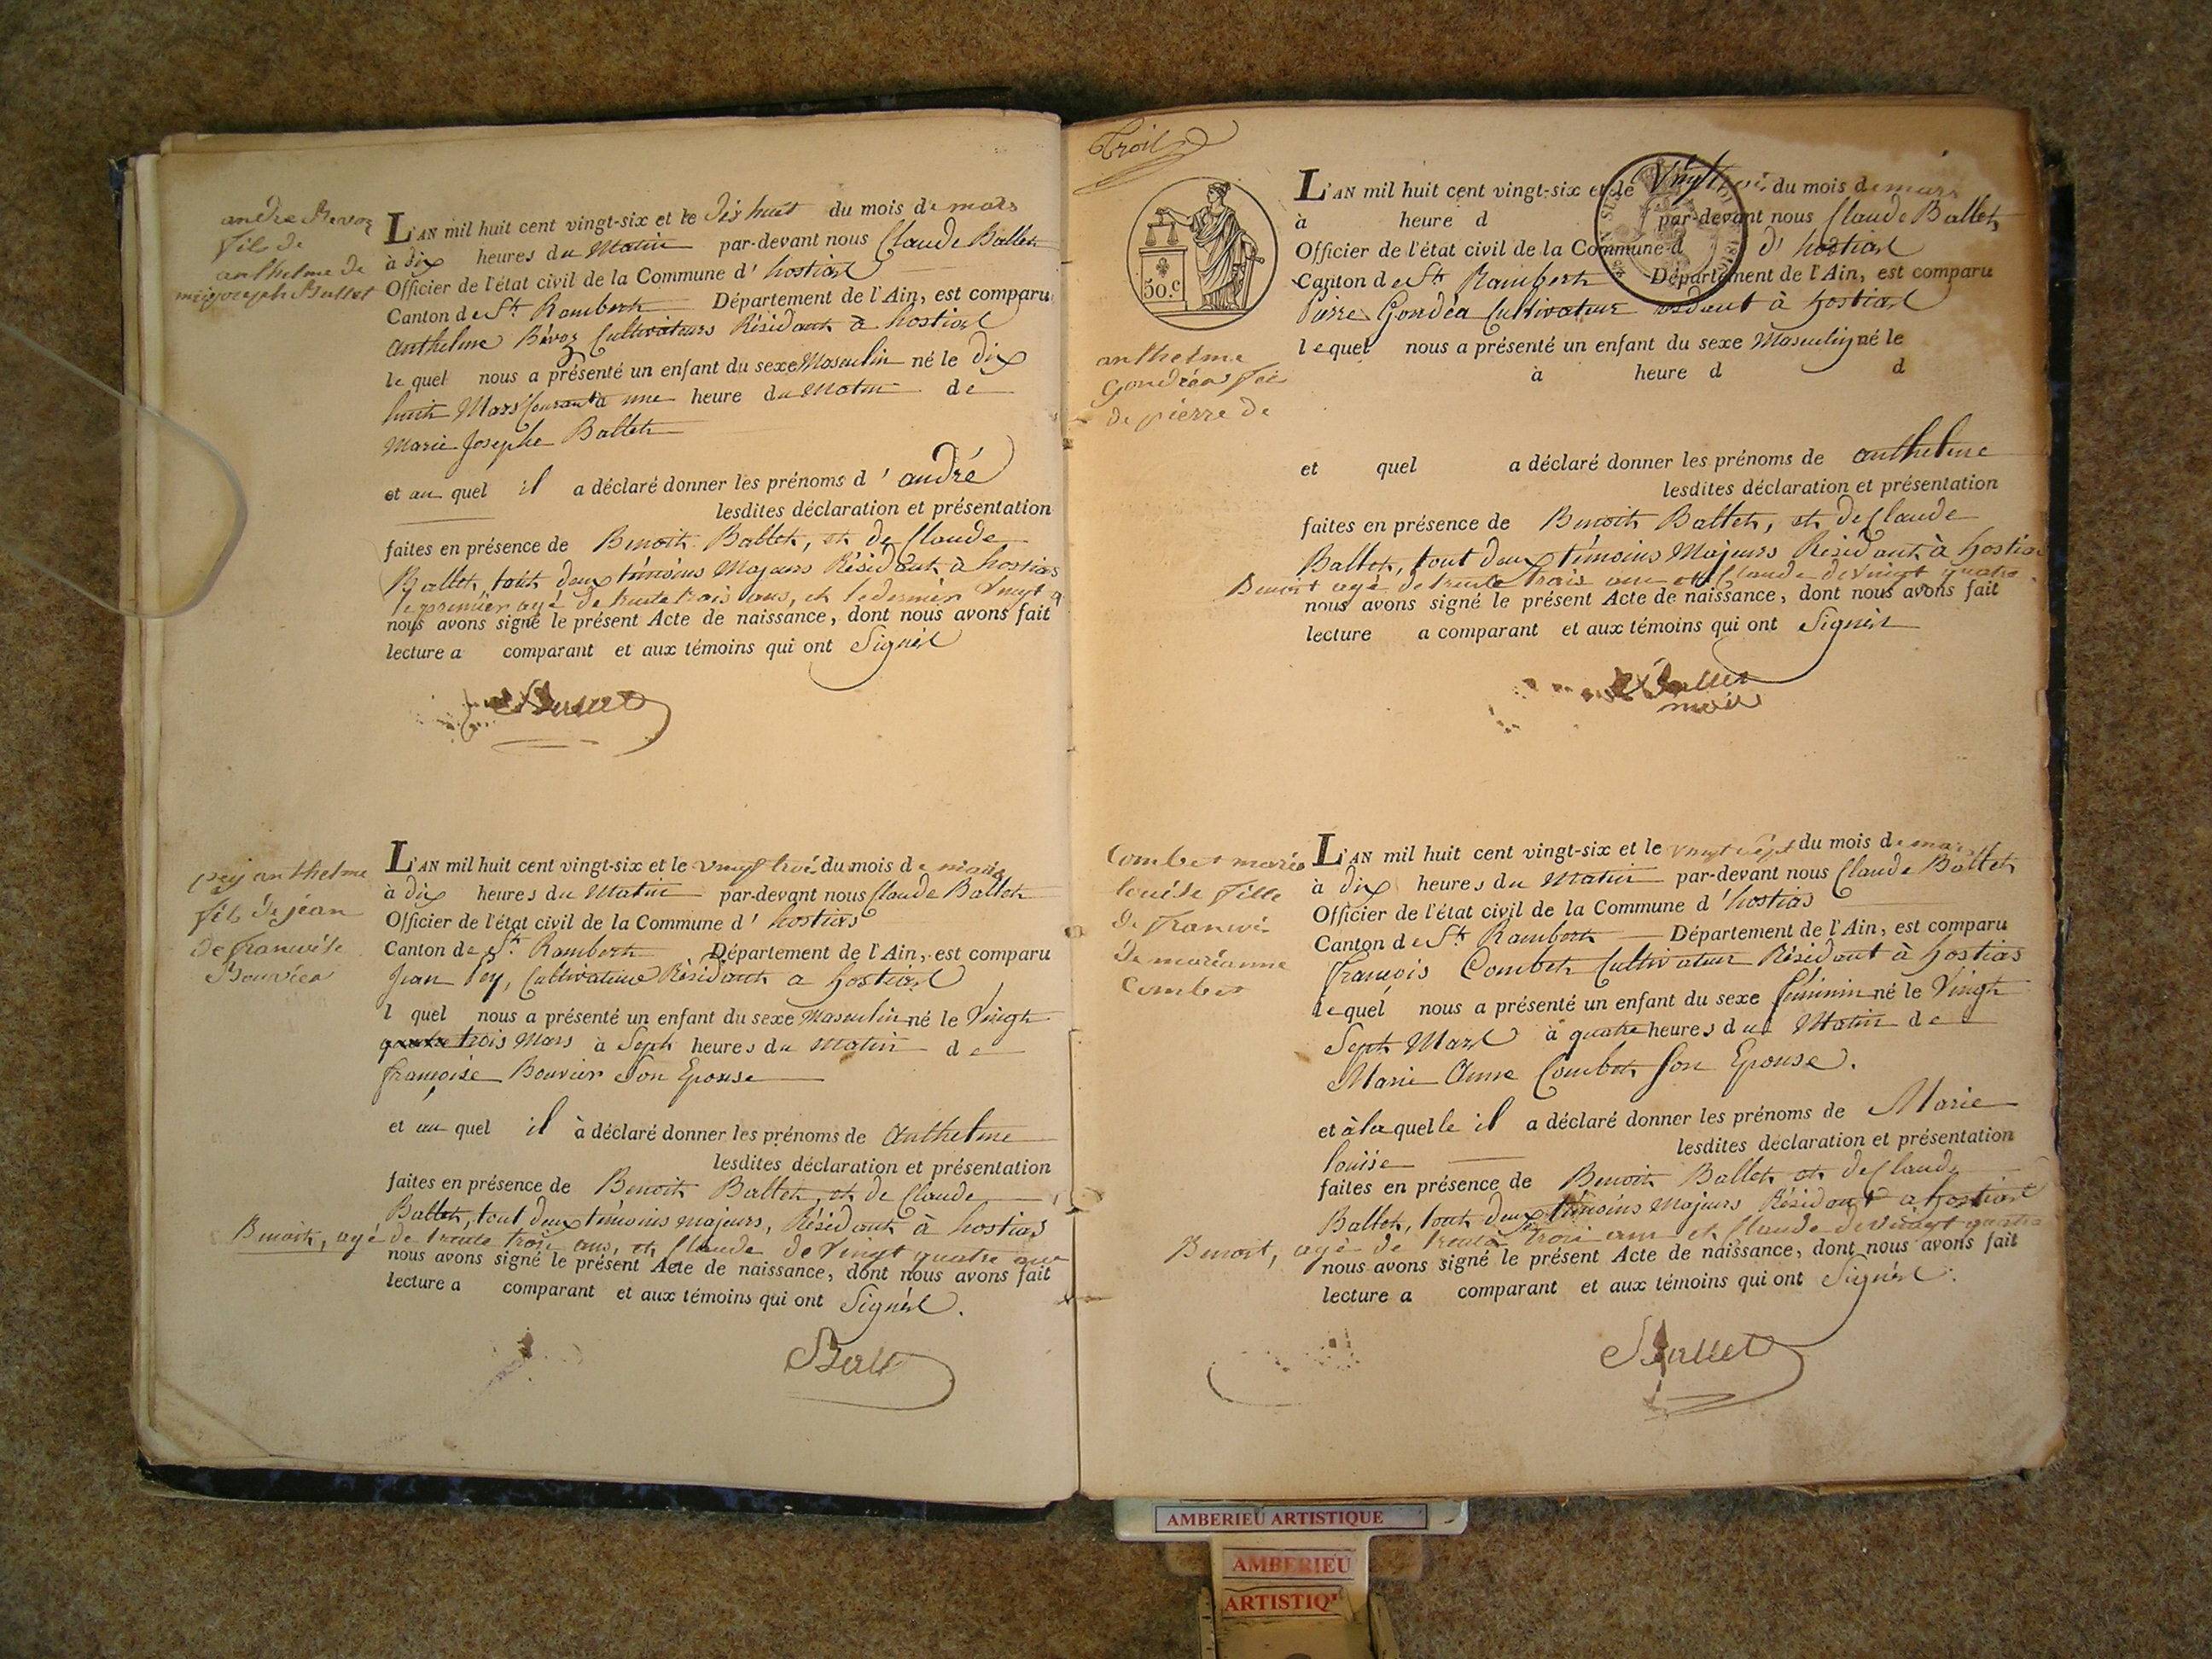 andré Bevoz
fils de
anthelme de
L'AN mil huit cent vingt-six et le Dix huit du mois de mars
à dix heures du Matin par-devant nous Claude Ballet
Officier de l'état civil de la Commune d' hostias
Canton de St. Rambert Département de l'Ain, est comparu
anthelme Bévoz Cultivateurs Résidant à hostias
le quel nous a présenté un enfant du sexe Masculin né le dix
huit Mars Courant à une heure du Matin de
Marie Josephe Ballet
et au quel il a déclaré donner les prénoms d' andré
lesdites déclaration et présentation
faites en présence de Benoit Ballet, et de Claude
Ballet, tout deux témoins Majeurs Résidant à hostias
le premier agé de trente trois ans, et le dernier Vingt q
nous avons signé le présent Acte de naissance, dont nous avons fait
lecture a comparant et aux témoins qui ont Signés
pey anthelme
fils de jean
De françoise
Bouvier
L'AN mil huit cent vingt-six et le vingt trois du mois de mars
à Dix heures du Matin par-devant nous Claude Ballet
Officier de l'état civil de la Commune d' hostias
Canton de St. Rambert Département de l'Ain, est comparu
Jean Pey, Cultivateur Résidant a hostias
l quel nous a présenté un enfant du sexe Masculin né le Vingt
quatre trois Mars à Sept heures du Matin de
françoise Bouvier Son Epouse
et au quel il à déclaré donner les prénoms de Anthelme
lesdites déclaration et présentation
faites en présence de Benoit Ballet, et de Claude
Ballet, tout deux témoins majeurs, Résidant à hostias
Benoit, agé de trente trois ans, et Claude de Vingt quatre ans
nous avons signé le présent Acte de naissance, dont nous avons fait
lecture a comparant et aux témoins qui ont Signés.
Ball
Trois
50.c
L'AN mil huit cent vingt-six et le Vingt trois du mois de mars
à heure d par-devant nous Claude Ballet
Officier de l'état civil de la Commune d d' hostias
Canton de St. Rambert Département de l'Ain, est comparu
Pierre Gondéa Cultivateur à hostias
lequel nous a présenté un enfant du sexe Masculin né le
à heure d d
anthelme
Gondréa
de pierre de
et quel a déclaré donner les prénoms de anthelme
lesdites déclaration et présentation
faites en présence de Benoit Ballet, et de Claude
Ballet, tout deux témoins Majeurs Résidant à hostias
Benoit agé de trente trois ans et Claude de vingt quatre
nous avons signé le présent Acte de naissance, dont nous avons fait
lecture a comparant et aux témoins qui ont Signés
Ballet
Combet marie
louise fille
de françois
de marianne
Combet
L'AN mil huit cent vingt-six et le vingt sept du mois de mars
à dix heures du Matin par-devant nous Claude Ballet
Officier de l'état civil de la Commune d' hostias
Canton de St. Rambert Département de l'Ain, est comparu
françois Combet Cultivateur Résidant à hostias
lequel nous a présenté un enfant du sexe féminin né le Vingt
Sept Mars à quatre heures du Matin de
Marie Anne Combet Son Epouse.
et à la quelle il a déclaré donner les prénoms de Marie
louise lesdites déclaration et présentation
faites en présence de Benoit Ballet et de Claude
Ballet, tout deux témoins Majeurs Résidant a hostias
Benoit, agé de trente trois ans et Claude de vingt quatre
nous avons signé le présent Acte de naissance, dont nous avons fait
lecture a comparant et aux témoins qui ont Signés.
Ballet
AMBERIEU ARTISTIQUE
AMBERIEU
ARTISTIQ